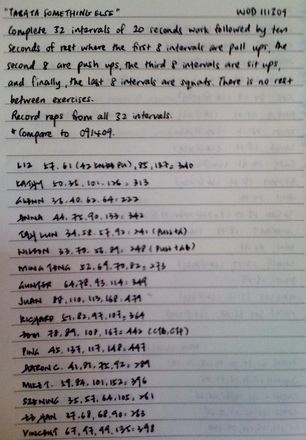 "TABATA SOMETHING ELSE" WOD 111309
Complete 32 intervals of 20 seconds work followed by ten
seconds of rest where the first 8 intervals are pull ups, the
second 8 are push ups, the third 8 intervals are sit ups,
and finally, the last 8 intervals are squats. There is no rest
between exercises.
Record reps from all 32 intervals.
* Compare to 091409.
LIZ 57. 61 (42 PU), 85, 137 = 340
KATHY 50. 36. 101. 126 = 313
GLENN 56. 40. 62. 64 = 222
ANNA 44. 75. 90. 133 = 342
LUN 34. 58. 57. 92 = 241
WILSON 33. 70. 56. 89 = 248
MING TONG 52. 69. 70. 82 = 273
GUNTER 64. 78. 93. 114 = 349
JUAN 88. 110. 113. 168 = 479
RICARDO 51. 82. 97. 137 = 364
78, 89. 108. 167 = 442
PING 45. 137. 117. 148 = 447
AARON C. 41. 81. 75. 92 = 289
MIKE T. 59. 84. 101. 152 = 396
35. 57. 64. 105 = 261
37. 68. 68. 90 = 263
VINCENT 67. 97. 99. 135 = 398